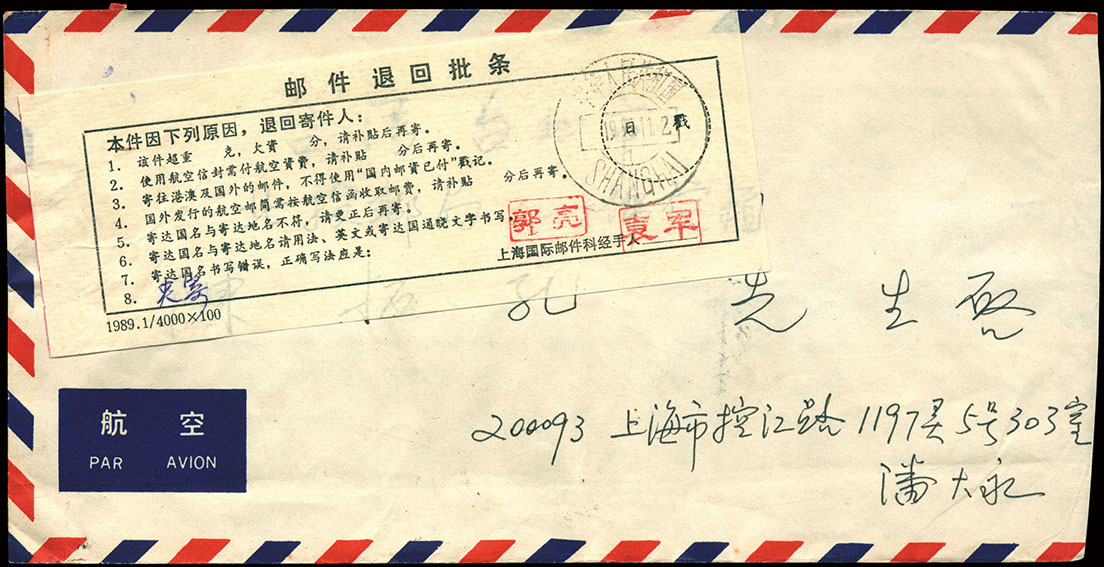 邮件退回批条
本件因下列原因，退回寄件人：
1. 该件超重 克，欠资 分，请补贴后再寄。
2. 使用航空信封需付航空资费，请补贴 分后再寄。
3. 寄往港澳及国外的邮件，不得使用“国内邮资已付”戳记。
4. 国外发行的航空邮简需按航空信函收取邮费，请补贴 分后再寄。
5. 寄达国名与寄达地名不得，请更正后再寄。
6. 寄达国名与寄达地名请用法、英文或寄达国通晓文字书写。
7. 寄达国名书写错误，正确写法应是：
8.
上海国际邮件科经手人
郭亮
袁军
1989.1/4000×100
日 戳
SHANGHAI
先生启
航空
PAR AVION
200093 上海市控江路1197弄5号303室
潘大永